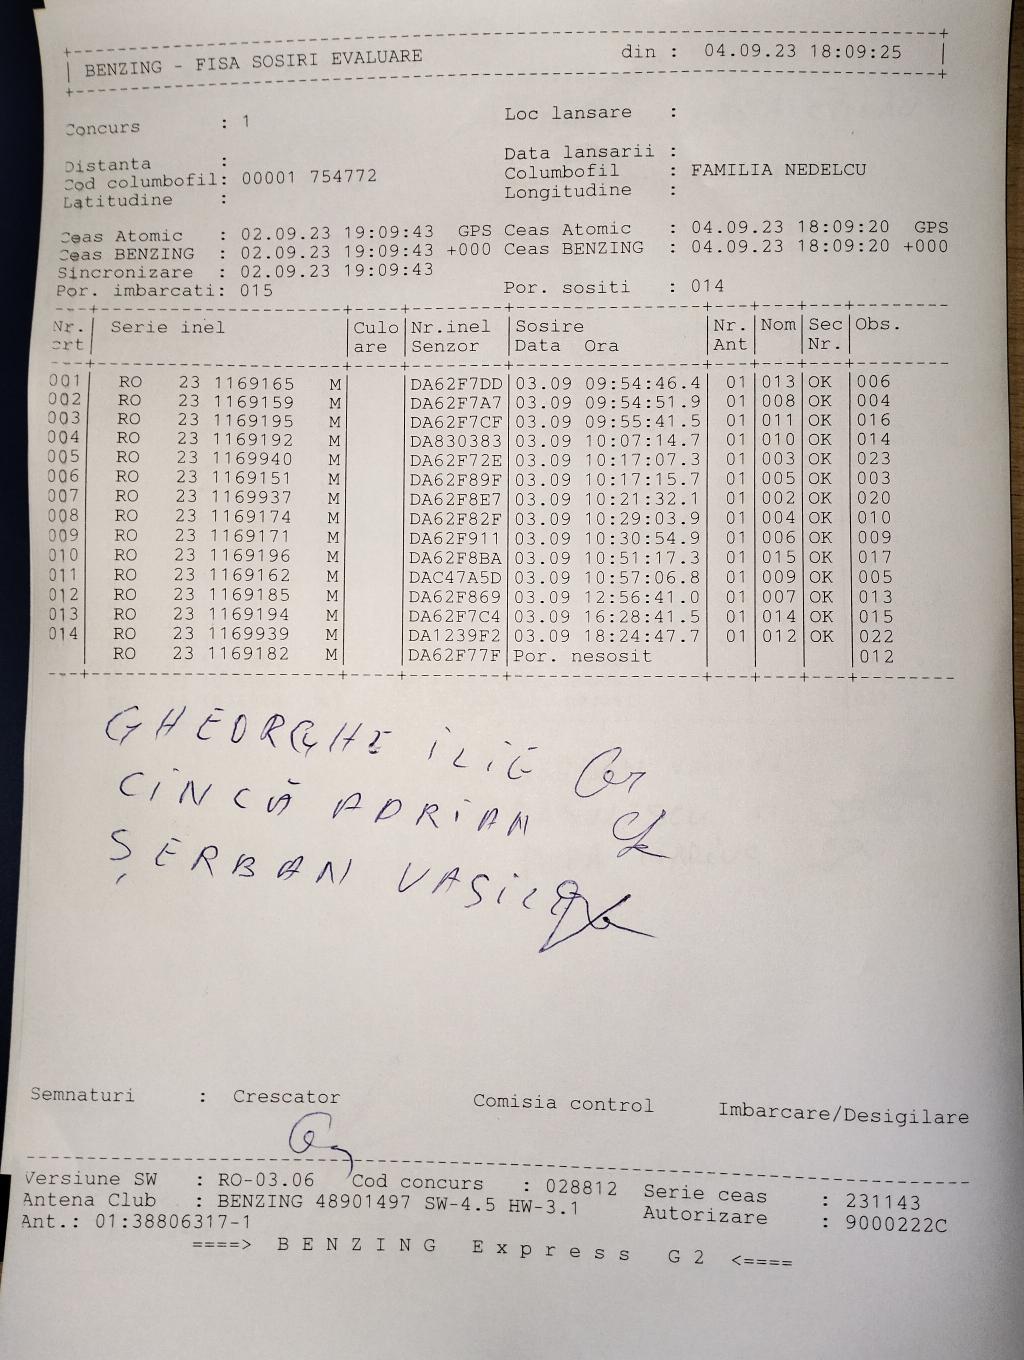 BENZING - FISA SOSIRI EVALUARE din : 04.09.23 18:09:25
Concurs : 1 Loc lansare :
Distanta : Data lansarii :
Cod columbofil: 00001 754772 Columbofil : FAMILIA NEDELCU
Latitudine : Longitudine :
Ceas Atomic : 02.09.23 19:09:43 GPS Ceas Atomic : 04.09.23 18:09:20 GPS
Ceas BENZING : 02.09.23 19:09:43 +000 Ceas BENZING : 04.09.23 18:09:20 +000
Sincronizare : 02.09.23 19:09:43
Por. imbarcati: 015 Por. sositi : 014
Nr. Serie inel Culo Nr.inel Sosire Nr. Nom Sec Obs.
crt are Senzor Data Ora Ant Nr.
001 RO 23 1169165 M DA62F7DD 03.09 09:54:46.4 01 013 OK 006
002 RO 23 1169159 M DA62F7A7 03.09 09:54:51.9 01 008 OK 004
003 RO 23 1169195 M DA62F7CF 03.09 09:55:41.5 01 011 OK 016
004 RO 23 1169192 M DA830383 03.09 10:07:14.7 01 010 OK 014
005 RO 23 1169940 M DA62F72E 03.09 10:17:07.3 01 003 OK 023
006 RO 23 1169151 M DA62F89F 03.09 10:17:15.7 01 005 OK 003
007 RO 23 1169937 M DA62F8E7 03.09 10:21:32.1 01 002 OK 020
008 RO 23 1169174 M DA62F82F 03.09 10:29:03.9 01 004 OK 010
009 RO 23 1169171 M DA62F911 03.09 10:30:54.9 01 006 OK 009
010 RO 23 1169196 M DA62F8BA 03.09 10:51:17.3 01 015 OK 017
011 RO 23 1169162 M DAC47A5D 03.09 10:57:06.8 01 009 OK 005
012 RO 23 1169185 M DA62F869 03.09 12:56:41.0 01 007 OK 013
013 RO 23 1169194 M DA62F7C4 03.09 16:28:41.5 01 014 OK 015
014 RO 23 1169939 M DA1239F2 03.09 18:24:47.7 01 012 OK 022
RO 23 1169182 M DA62F77F Por. nesosit 012
GHEORGHE ILIE
CINCĂ ADRIAN
ȘERBAN VASILE
Semnaturi : Crescator Comisia control Imbarcare/Desigilare
Versiune SW : RO-03.06 Cod concurs : 028812 Serie ceas : 231143
Antena Club : BENZING 48901497 SW-4.5 HW-3.1 Autorizare : 9000222C
Ant.: 01:38806317-1
====> B E N Z I N G E x p r e s s G 2 <====